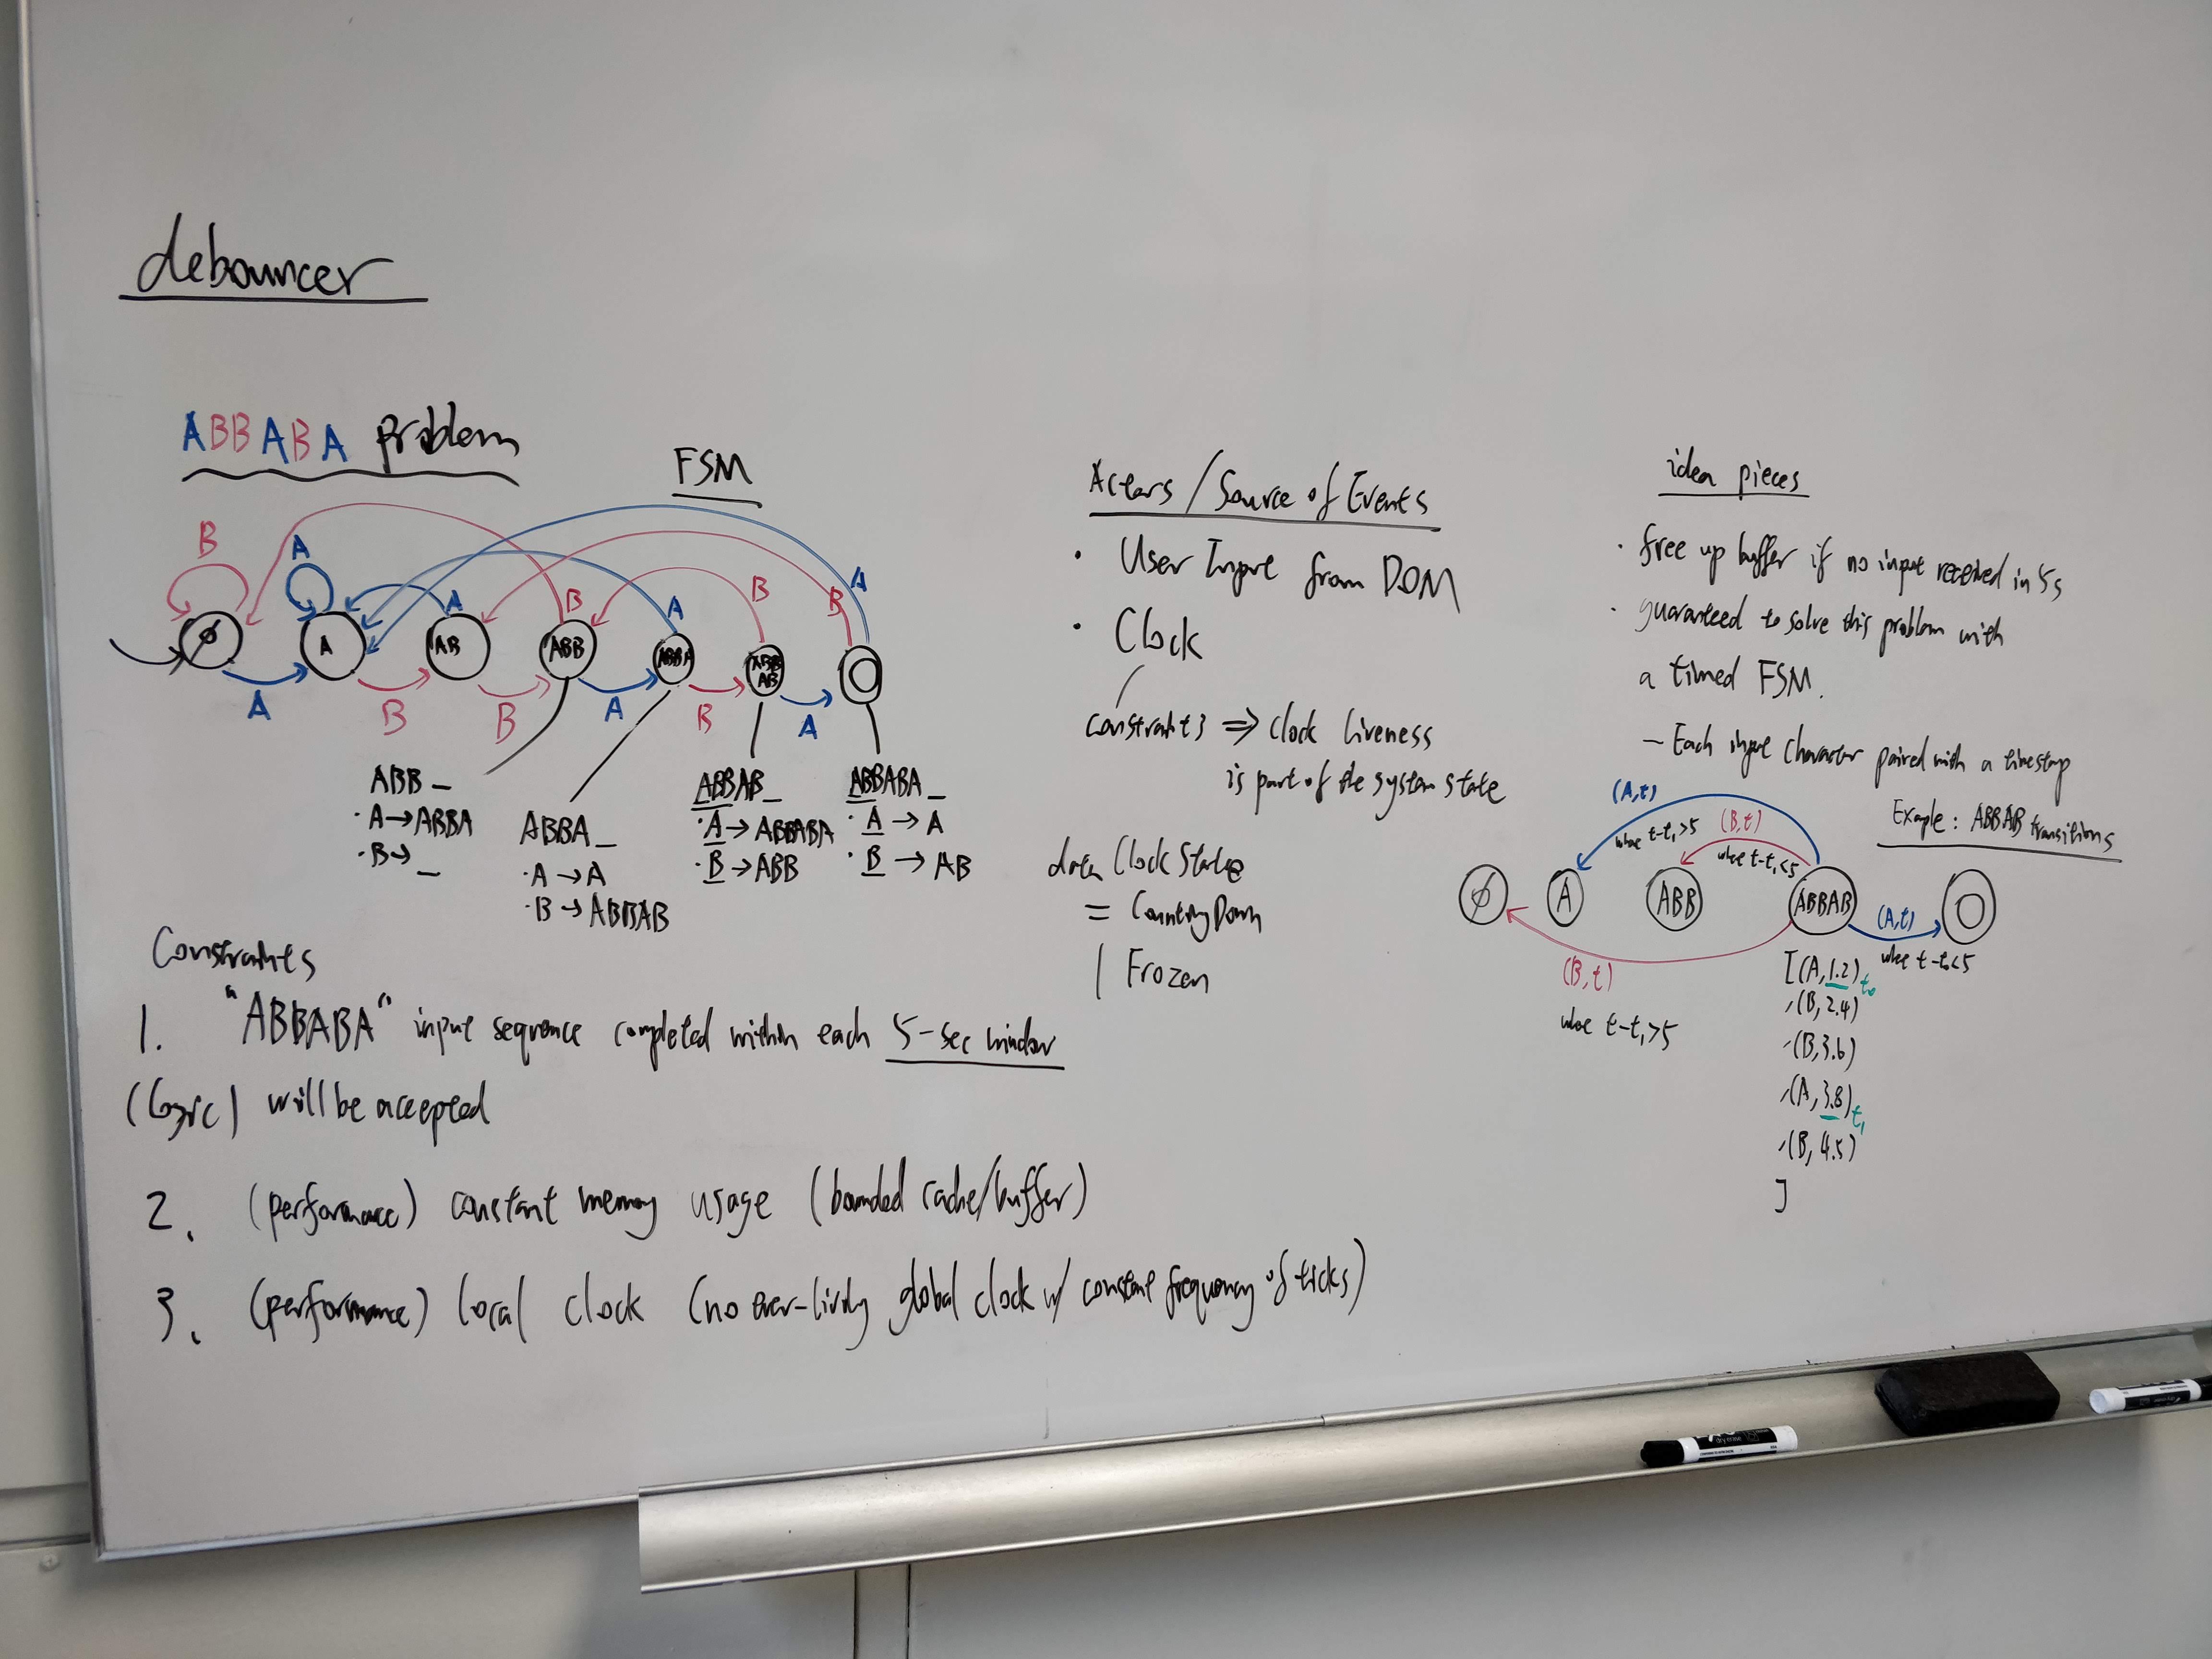 debouncer
ABBABA problem
FSM
B
A
A
B
A
B
A
B
∅
A
AB
ABB
ABBA
ABB
AB
A
B
B
A
B
A
ABB _
· A → ABBA
· B → _
ABBA _
· A → A
· B → ABBAB
ABBAB _
· A → ABBABA
· B → ABB
ABBABA _
· A → A
· B → AB
Constraints
1. "ABBABA" input sequence completed within each 5-sec window
(logic) will be accepted
2. (performance) constant memory usage (bounded cache/buffer)
3. (performance) local clock (no ever-living global clock w/ constant frequency of ticks)
Actors / Source of Events
· User Input from DOM
· Clock
constraint 3 ⇒ Clock liveness
is part of the system state
data ClockState
= CountingDown
| Frozen
idea pieces
· free up buffer if no input received in 5s
· guaranteed to solve this problem with
a timed FSM.
- Each input character paired with a timestamp
Example: ABBAB transitions
(A,t)
where t-t₁>5
(B,t)
where t-t₁<5
∅
A
ABB
ABBAB
(A,t)
where t-t₀<5
(B,t)
where t-t₁>5
[(A,1.2) t₀
,(B,2.4)
,(B,3.6)
,(A,3.8) t₁
,(B,4.5)
]